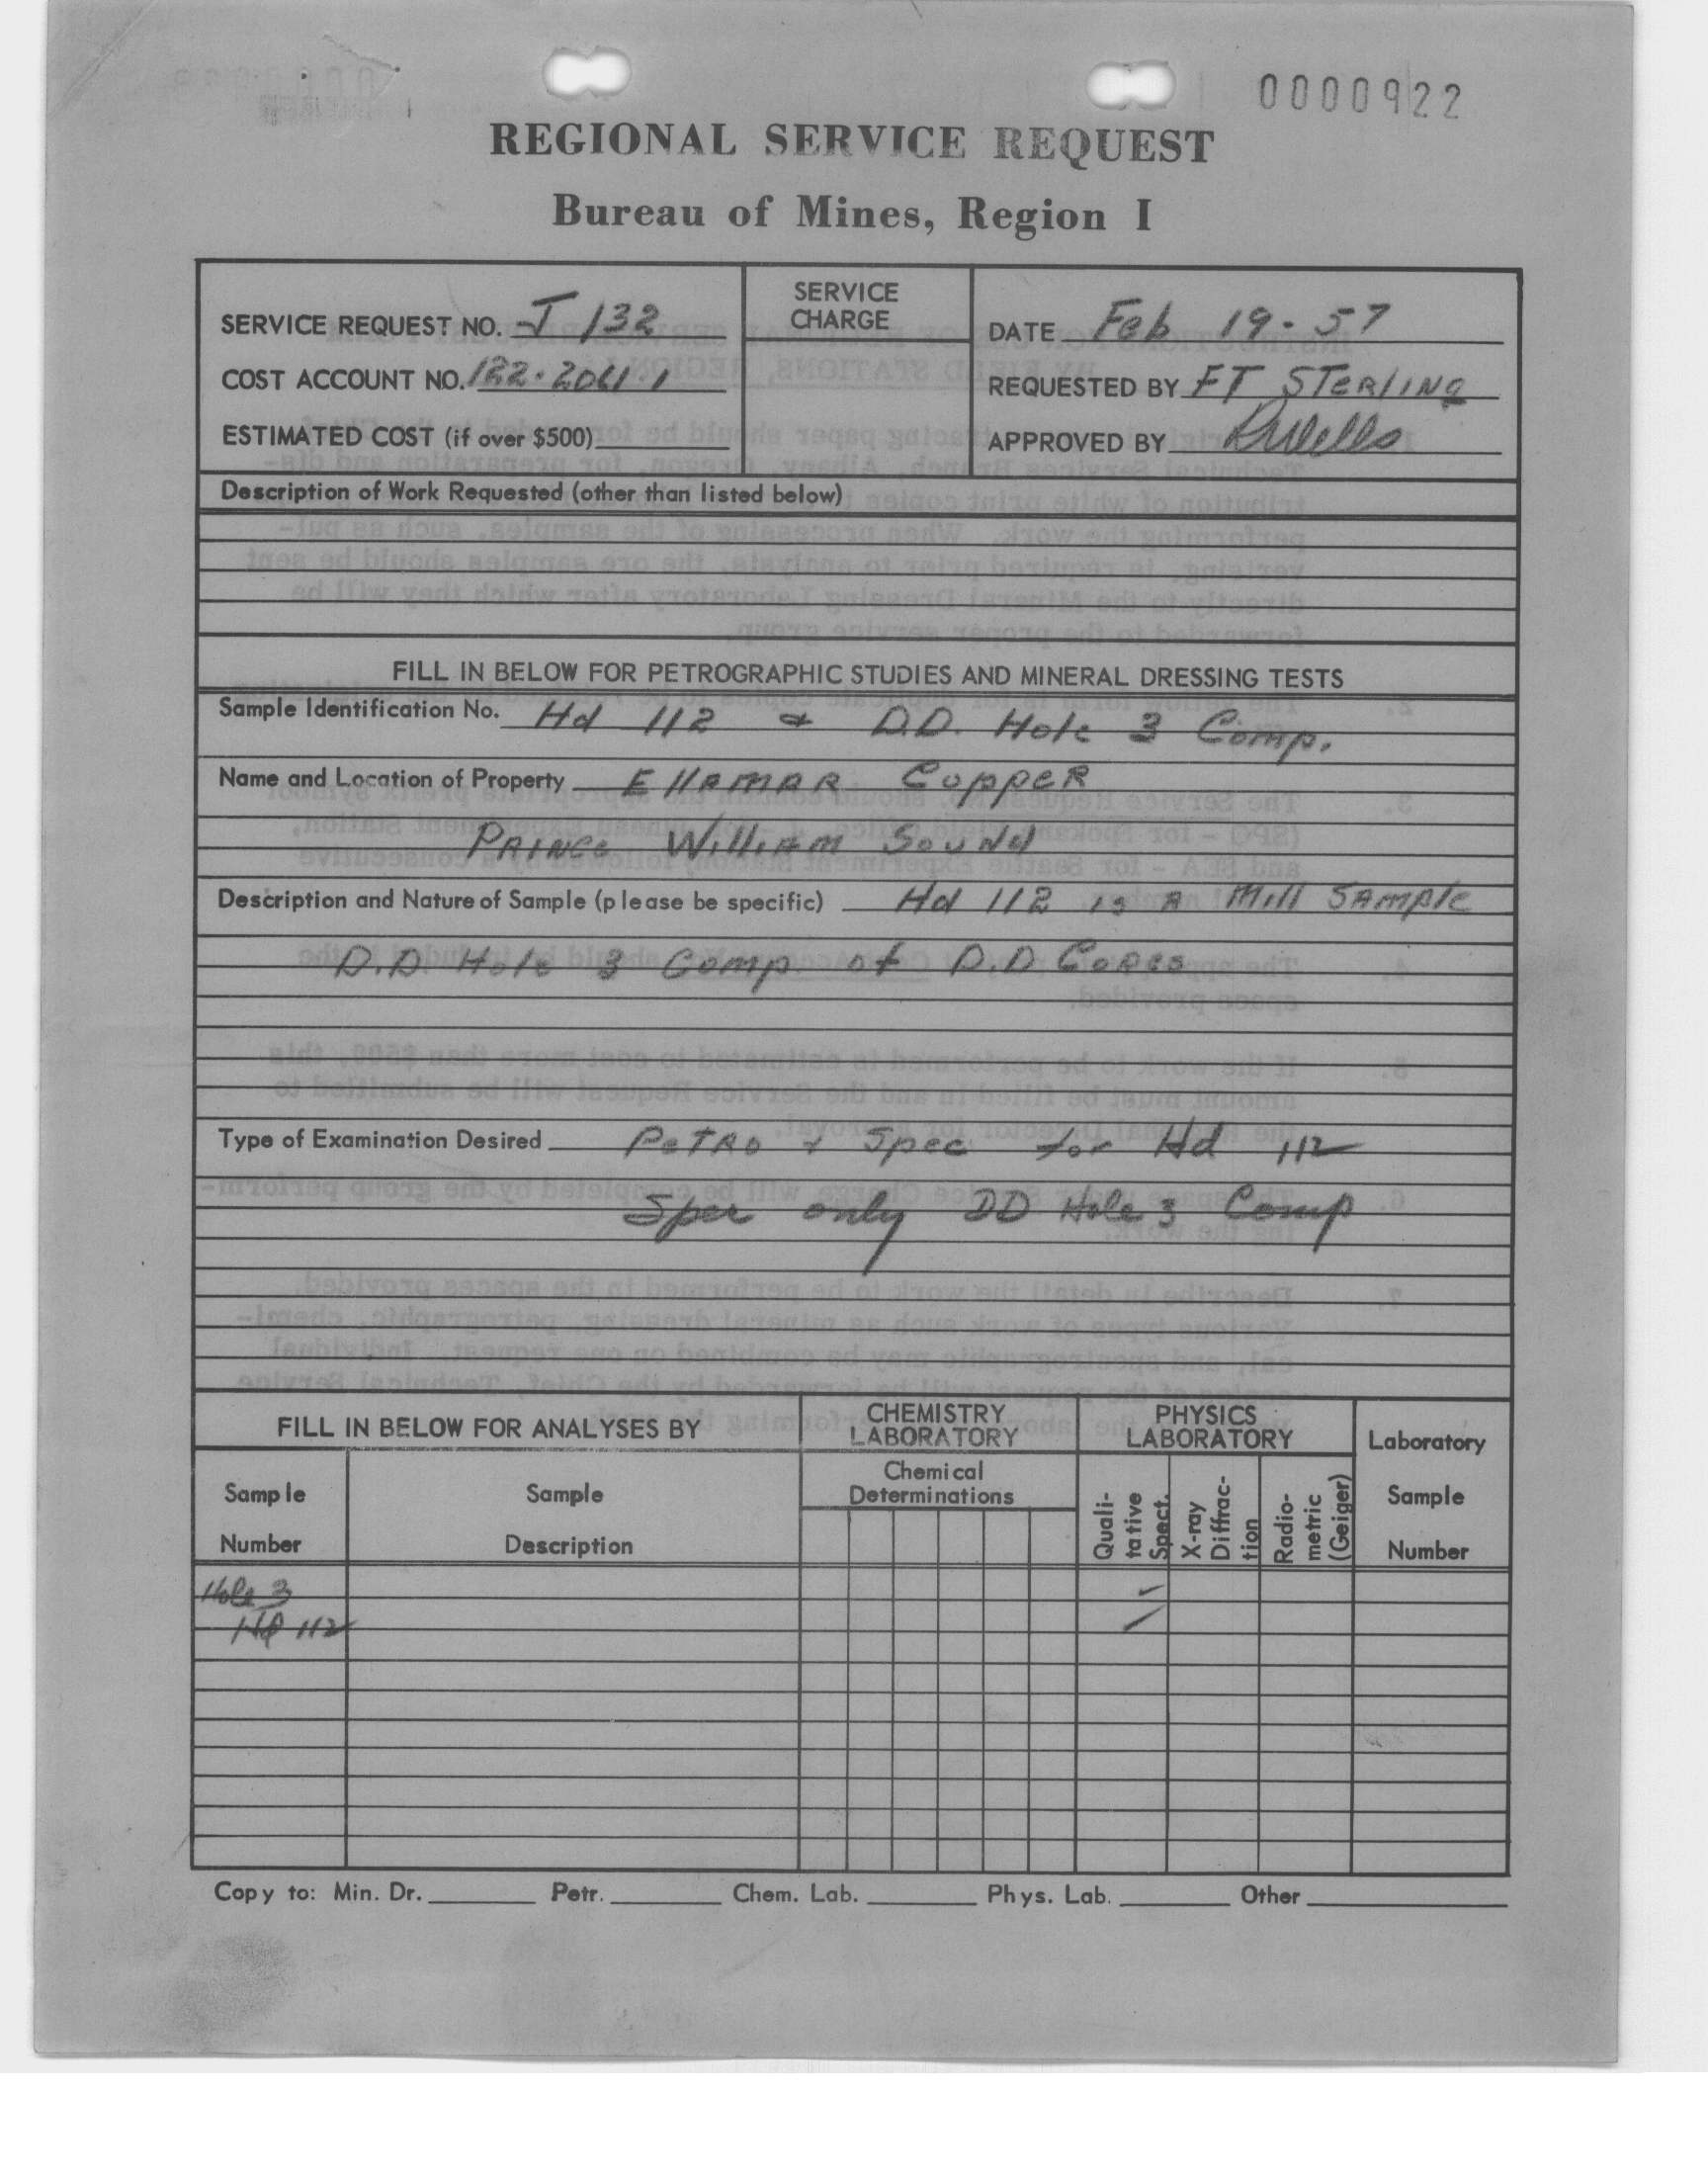 0000922
REGIONAL SERVICE REQUEST
Bureau of Mines, Region I
SERVICE REQUEST NO. J 132
COST ACCOUNT NO. 122.2041.1
ESTIMATED COST (if over $500)
SERVICE
CHARGE
DATE Feb 19-57
REQUESTED BY FT STERLING
APPROVED BY RWells
Description of Work Requested (other than listed below)
FILL IN BELOW FOR PETROGRAPHIC STUDIES AND MINERAL DRESSING TESTS
Sample Identification No. Hd 112 & D.D. Hole 3 Comp.
Name and Location of Property EllAMAR CoppeR
PRINCE WilliAM SouNd
Description and Nature of Sample (please be specific) Hd 112 is A Mill SAmple
D.D. Hole 3 Comp of D.D Cores
Type of Examination Desired PeTRO & Spec for Hd 112
Spec only DD Hole 3 Comp
FILL IN BELOW FOR ANALYSES BY
CHEMISTRY
LABORATORY
PHYSICS
LABORATORY
Laboratory
Sample
Number
Sample
Number
Sample
Description
Chemical
Determinations
Quali-
tative
Spect.
X-ray
Diffrac-
tion
Radio-
metric
(Geiger)
Hole 3
Hd 112
Copy to: Min. Dr. Petr. Chem. Lab. Phys. Lab. Other